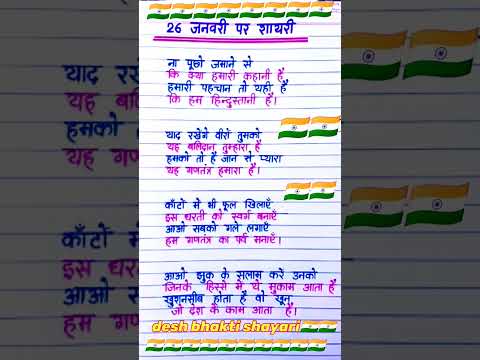 26 जनवरी पर शायरी
ना पूछो जमाने से
कि क्या हमारी कहानी है
हमारी पहचान तो यही है
कि हम हिन्दुस्तानी हैं।
याद रखेंगे वीरों तुमको
यह बलिदान तुम्हारा है
हमको तो है जान से प्यारा
यह गणतंत्र हमारा है।
काँटों में भी फूल खिलाएँ
इस धरती को स्वर्ग बनाएँ
आओ सबको गले लगाएँ
हम गणतंत्र का पर्व मनाएँ।
आओ झुक के सलाम करें उनको
जिनके हिस्से में ये मुकाम आता है
खुशनसीब होता है वो खून
जो देश के काम आता है।
desh bhakti shayari
याद रखें
यह बलि
हमको
यह गण
काँटों
इस धर
आओ स
हम ग